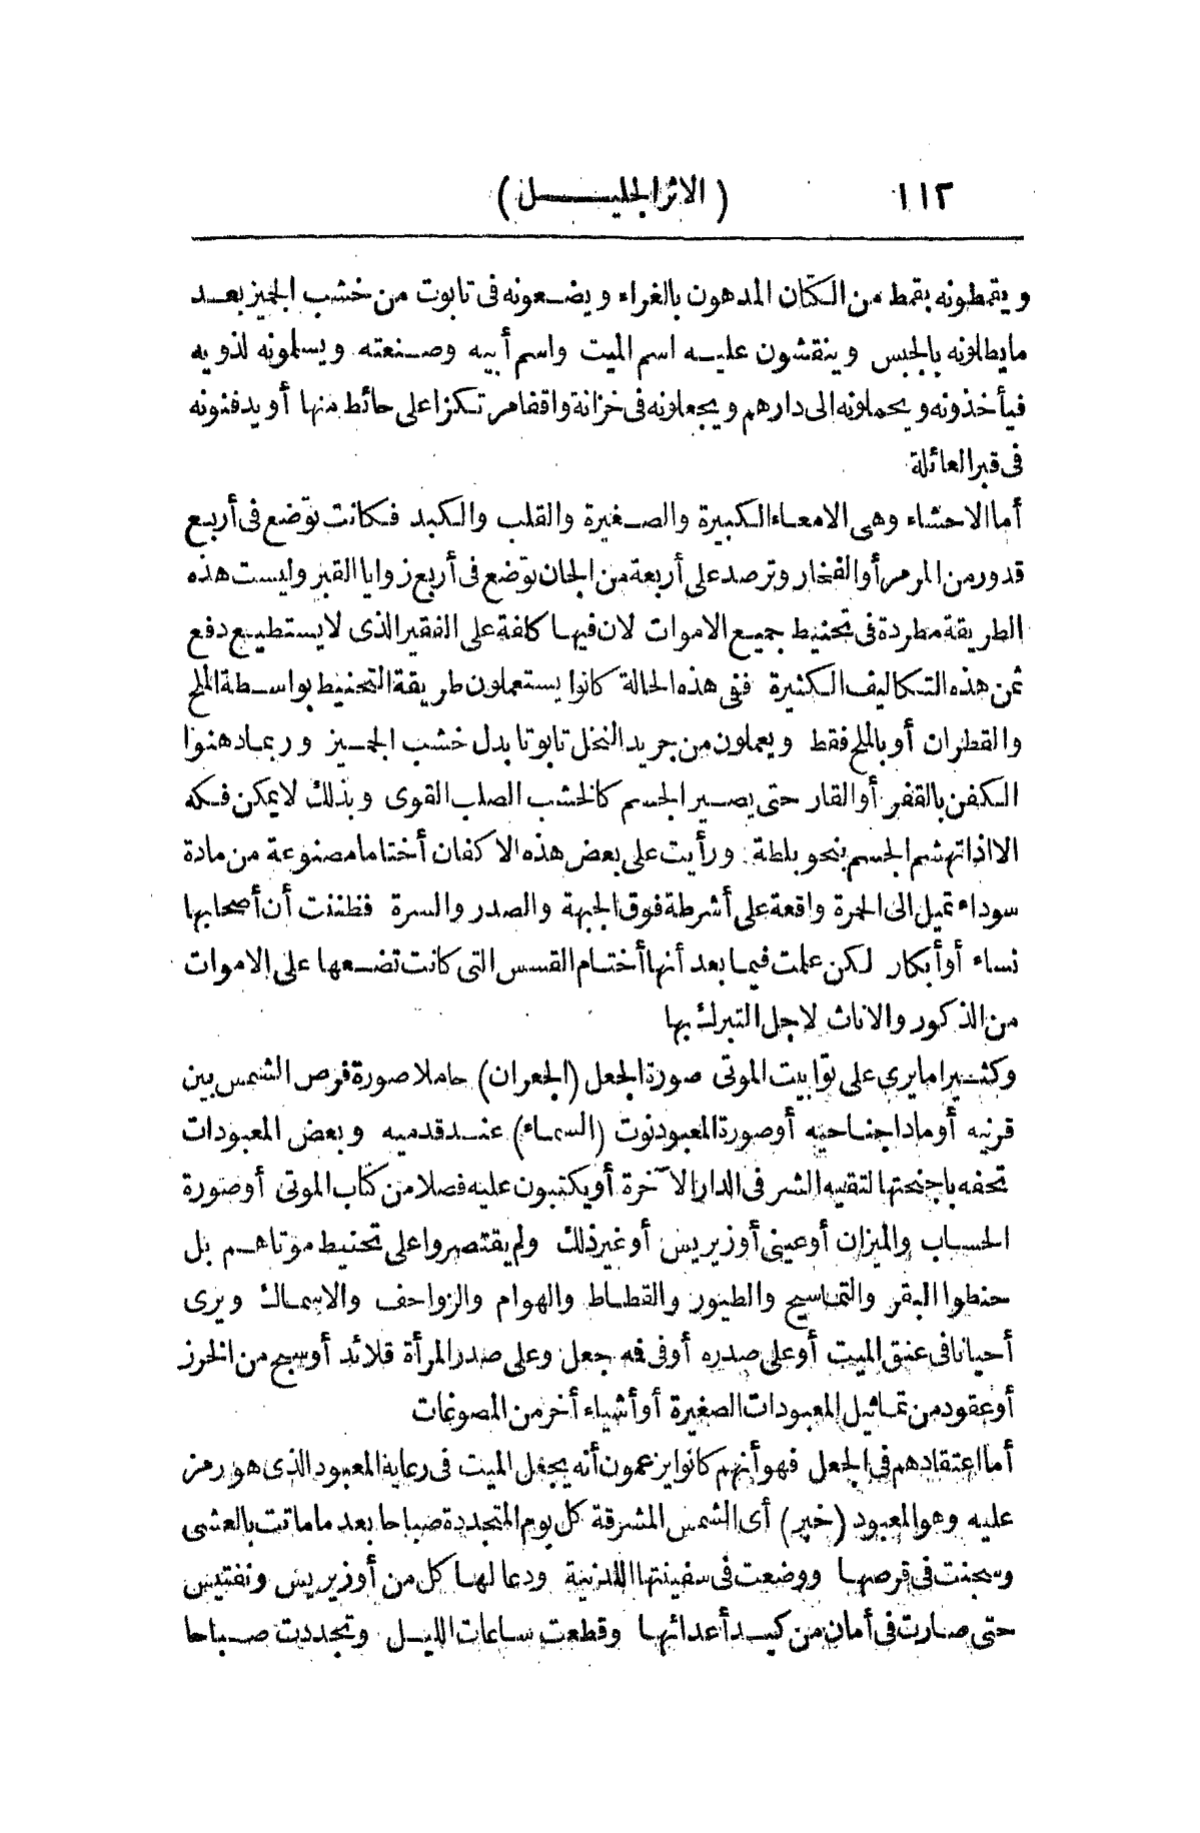 ١١٢
(الاثر الجليل)
ويقمطونه بقمط من الكتان المدهون بالغراء ويضعونه فى تابوت من خشب الجميز بعد
ما يطلونه بالجبس وينقشون عليه اسم الميت واسم أبيه وصنعته ويسلمونه لذويه
فيأخذونه ويحملونه الى دارهم ويجعلونه فى خزانة واقفا مرتكزا على حائط منها أو يدفنونه
فى قبر العائلة
أما الاحشاء وهى الامعاء الكبيرة والصغيرة والقلب والكبد فكانت توضع فى أربع
قدور من المرمر أو الفخار وترصد على أربعة من الجان توضع فى أربع زوايا القبر وليست هذه
الطريقة مطردة فى تحنيط جميع الاموات لان فيها كلفة على الفقير الذى لا يستطيع دفع
ثمن هذه التكاليف الكثيرة ففى هذه الحالة كانوا يستعملون طريقة التحنيط بواسطة الملح
والقطران أو بالملح فقط ويعملون من جريد النخل تابوتا بدل خشب الجميز وربما دهنوا
الكفن بالقفر أو القار حتى يصير الجسم كالخشب الصلب القوى وبذلك لا يمكن فكه
الا اذا تهشم الجسم بنحو بلطة ورأيت على بعض هذه الاكفان أختاما مصنوعة من مادة
سوداء تميل الى الحمرة واقعة على أشرطة فوق الجبهة والصدر والسرة فظننت أن أصحابها
نساء أو أبكار لكن علمت فيما بعد أنها أختام القسس التى كانت تضعها على الاموات
من الذكور والاناث لاجل التبرك بها
وكثيرا ما يرى على توابيت الموتى صورة الجعل (الجعران) حاملا صورة قرص الشمس بين
قرنيه أو مادا جناحيه أو صورة المعبود نوت (السماء) عند قدميه وبعض المعبودات
تحفه باجنحتها لتقيه الشر فى الدار الآخرة أو يكتبون عليه فصلا من كتاب الموتى أو صورة
الحساب والميزان أو عينى أوزيريس أو غير ذلك ولم يقتصروا على تحنيط موتاهم بل
حنطوا البقر والتماسيح والطيور والقطاط والهوام والزواحف والاسماك ويرى
أحيانا فى عنق الميت أو على صدره أو فى فمه جعل وعلى صدر المرأة قلائد أو سبح من الخرز
أو عقود من تماثيل المعبودات الصغيرة أو أشياء أخر من المصوغات
أما اعتقادهم فى الجعل فهو أنهم كانوا يزعمون أنه يجعل الميت فى رعاية المعبود الذى هو رمز
عليه وهو المعبود (خپر) أى الشمس المشرقة كل يوم المتجددة صباحا بعد ما ماتت بالعشى
وسجنت فى قرصها ووضعت فى سفينتها اللدنية ودعا لها كل من أوزيريس ونفتيس
حتى صارت فى أمان من كيد أعدائها وقطعت ساعات الليل وتجددت صباحا